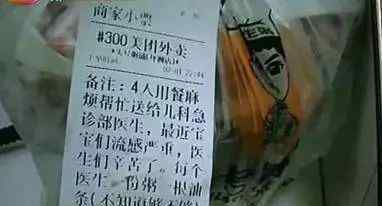 商家小票
#300美团外卖
备注：4人用餐麻
烦帮忙送给儿科急
诊部医生，最近宝
宝们流感严重，医
生们辛苦了。每个
医生一份粥一根油
条(不知道够不够)